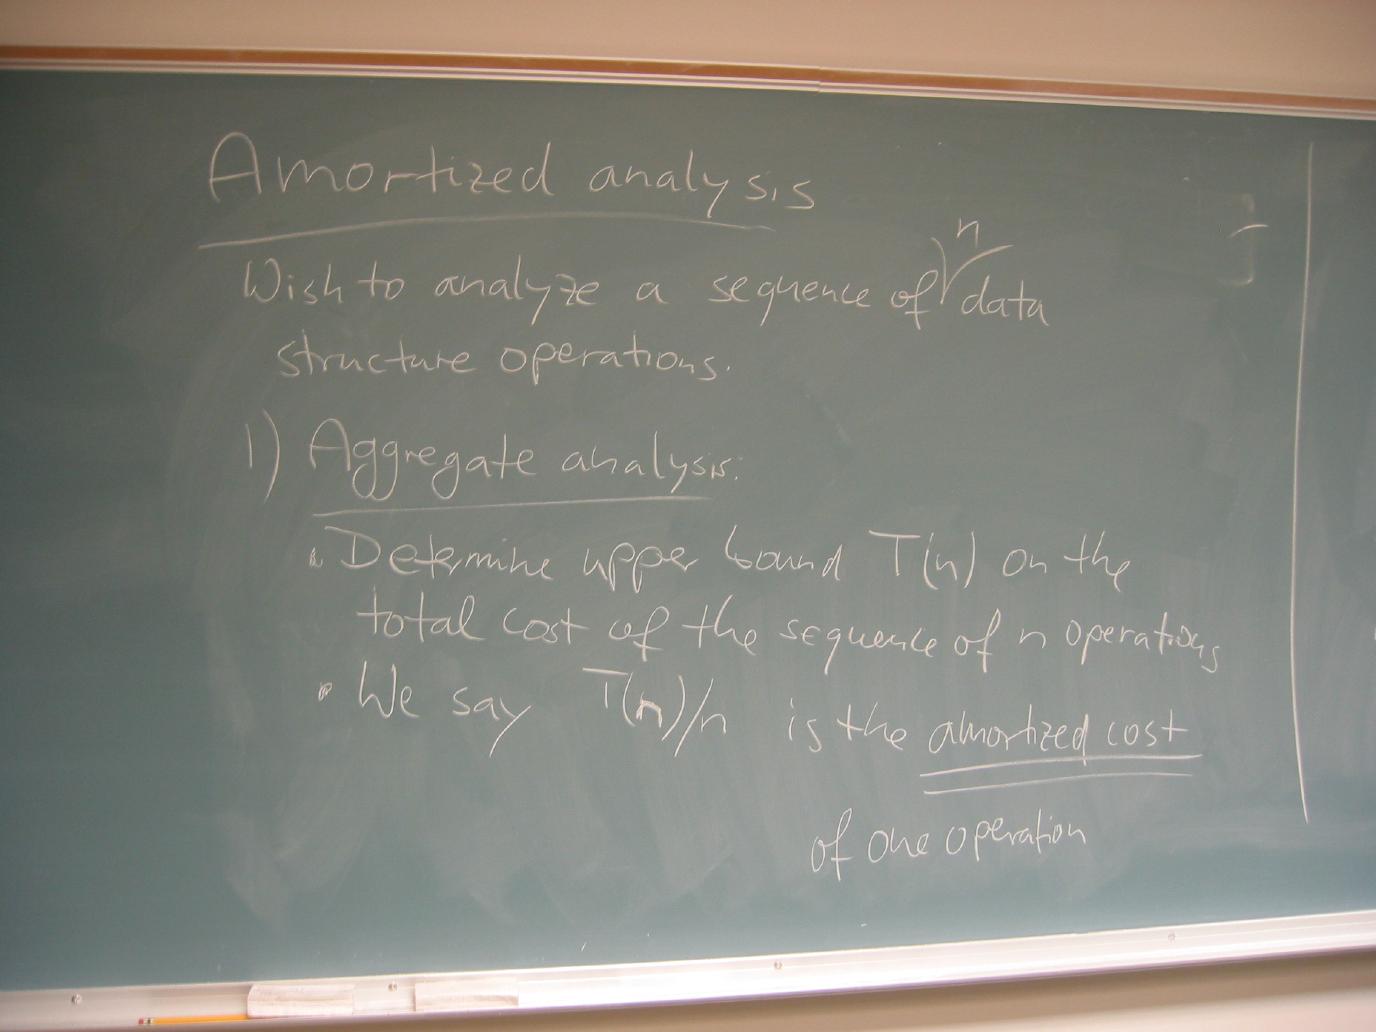 Amortized analysis
Wish to analyze a sequence of n data
structure operations.
1) Aggregate analysis:
• Determine upper bound T(n) on the
total cost of the sequence of n operations
• We say T(n)/n is the amortized cost
of one operation